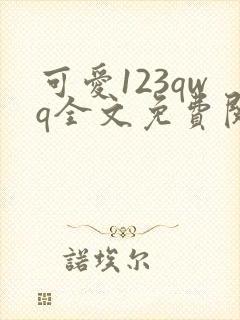 可愛123qw
q全文免費閱
諾埃尔